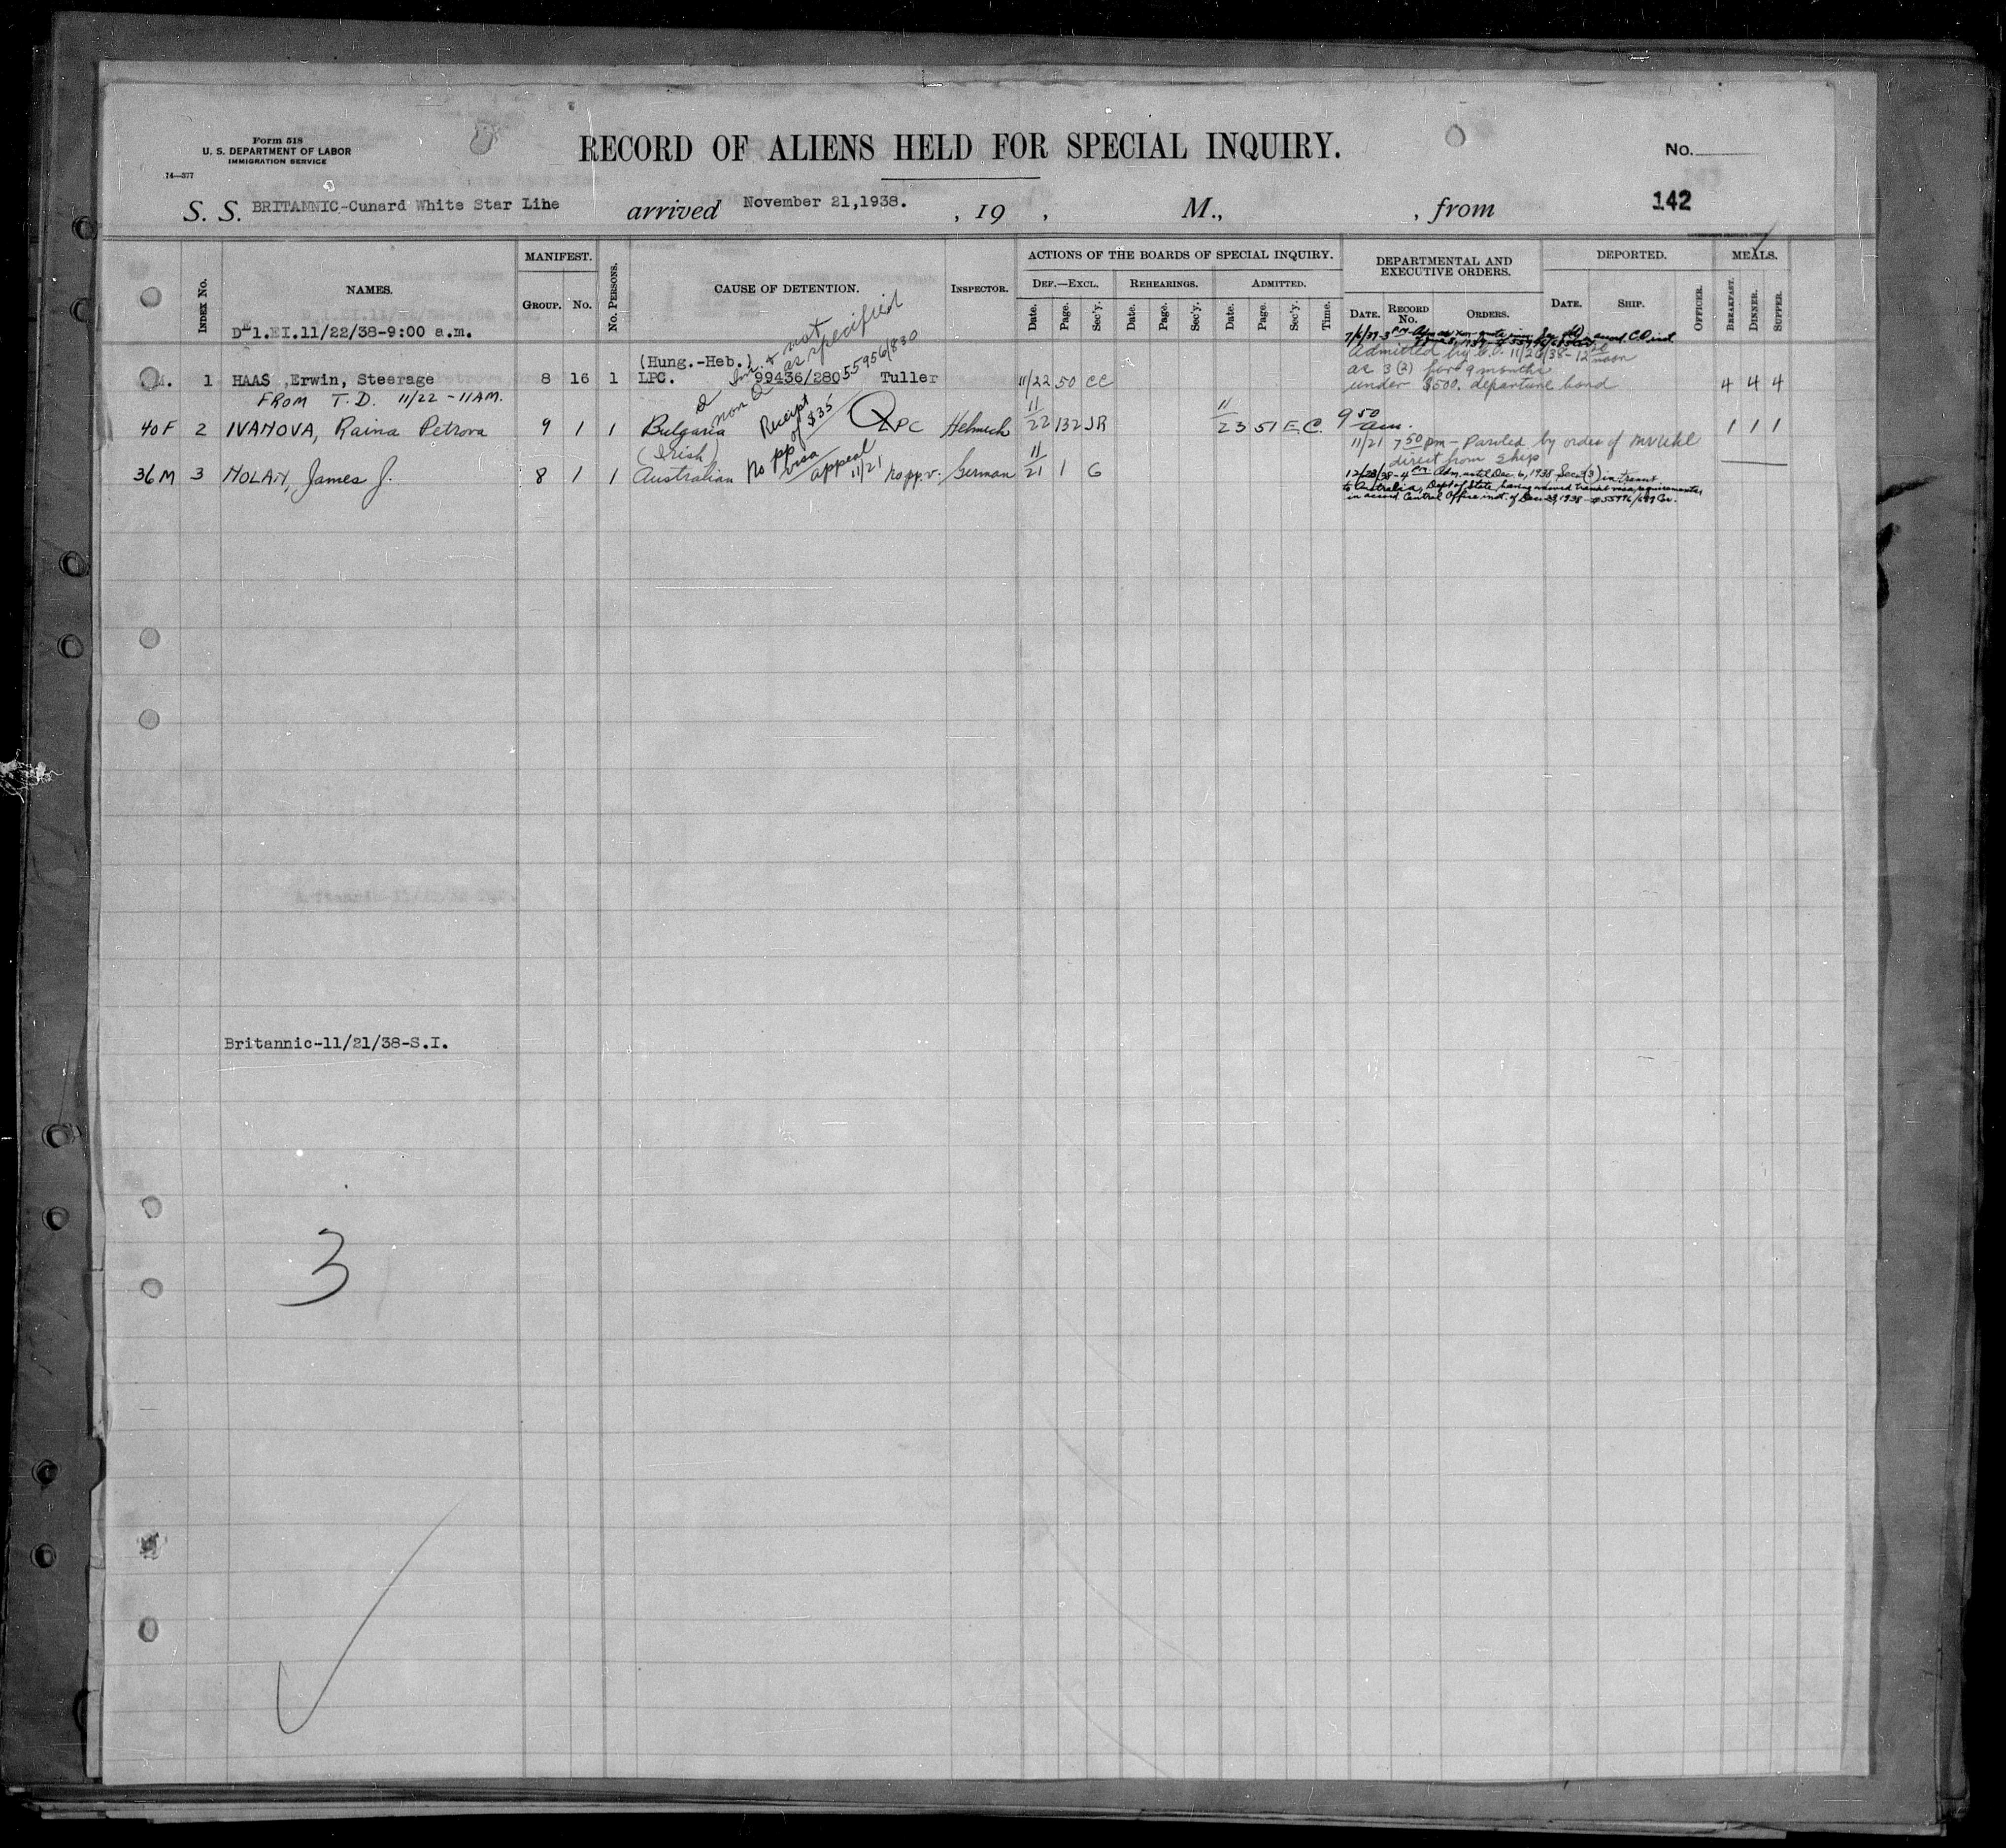 Form 518
U. S. DEPARTMENT OF LABOR
IMMIGRATION SERVICE
14—377
RECORD OF ALIENS HELD FOR SPECIAL INQUIRY.
No.
142
S. S. BRITANNIC-Cunard White Star Line arrived November 21,1938. , 19 , M., , from
INDEX No.
NAMES.
MANIFEST.
GROUP. No.
No. PERSONS.
CAUSE OF DETENTION.
INSPECTOR.
ACTIONS OF THE BOARDS OF SPECIAL INQUIRY.
DEF.—EXCL. REHEARINGS. ADMITTED.
Date. Page. Sec'y. Date. Page. Sec'y. Date. Page. Sec'y. Time.
DEPARTMENTAL AND
EXECUTIVE ORDERS.
DATE. RECORD No. ORDERS.
DEPORTED.
DATE. SHIP. OFFICER.
MEALS.
BREAKFAST. DINNER. SUPPER.
1.EI.11/22/38-9:00 a.m.
1 HAAS ,Erwin, Steerage 8 16 1 (Hung.-Heb.)
LPC. 99436/280 Tuller 11/22 50 CC 4 4 4
not
as specified
55956/830
FROM T.D. 11/22 -11AM.
Admitted by C.O. 11/26/38-12 noon
as 3(2) for 9 months
under $500. departure bond
40F 2 IVANOVA, Raina Petrova 9 1 1 Bulgaria LPC Helmich 11/22 132 JR 11/23 51 E.C. 9 50 am. 1 1 1
Receipt
of $35
36M 3 NOLAN, James J. 8 1 1 (Irish)
Australian No pp visa appeal 11/21 no pp.v. German 11/21 1 G
11/21 7 50 pm - Paroled by order of Mr Uhl
direct from ship
12/28/38-4 PM Adm. until Dec. 6, 1938 Sec 3(3) in transit
to Australia, Dept of State having waived transit visa requirements
in accord Central Office inst. of Dec.
Britannic-11/21/38-S.I.
3